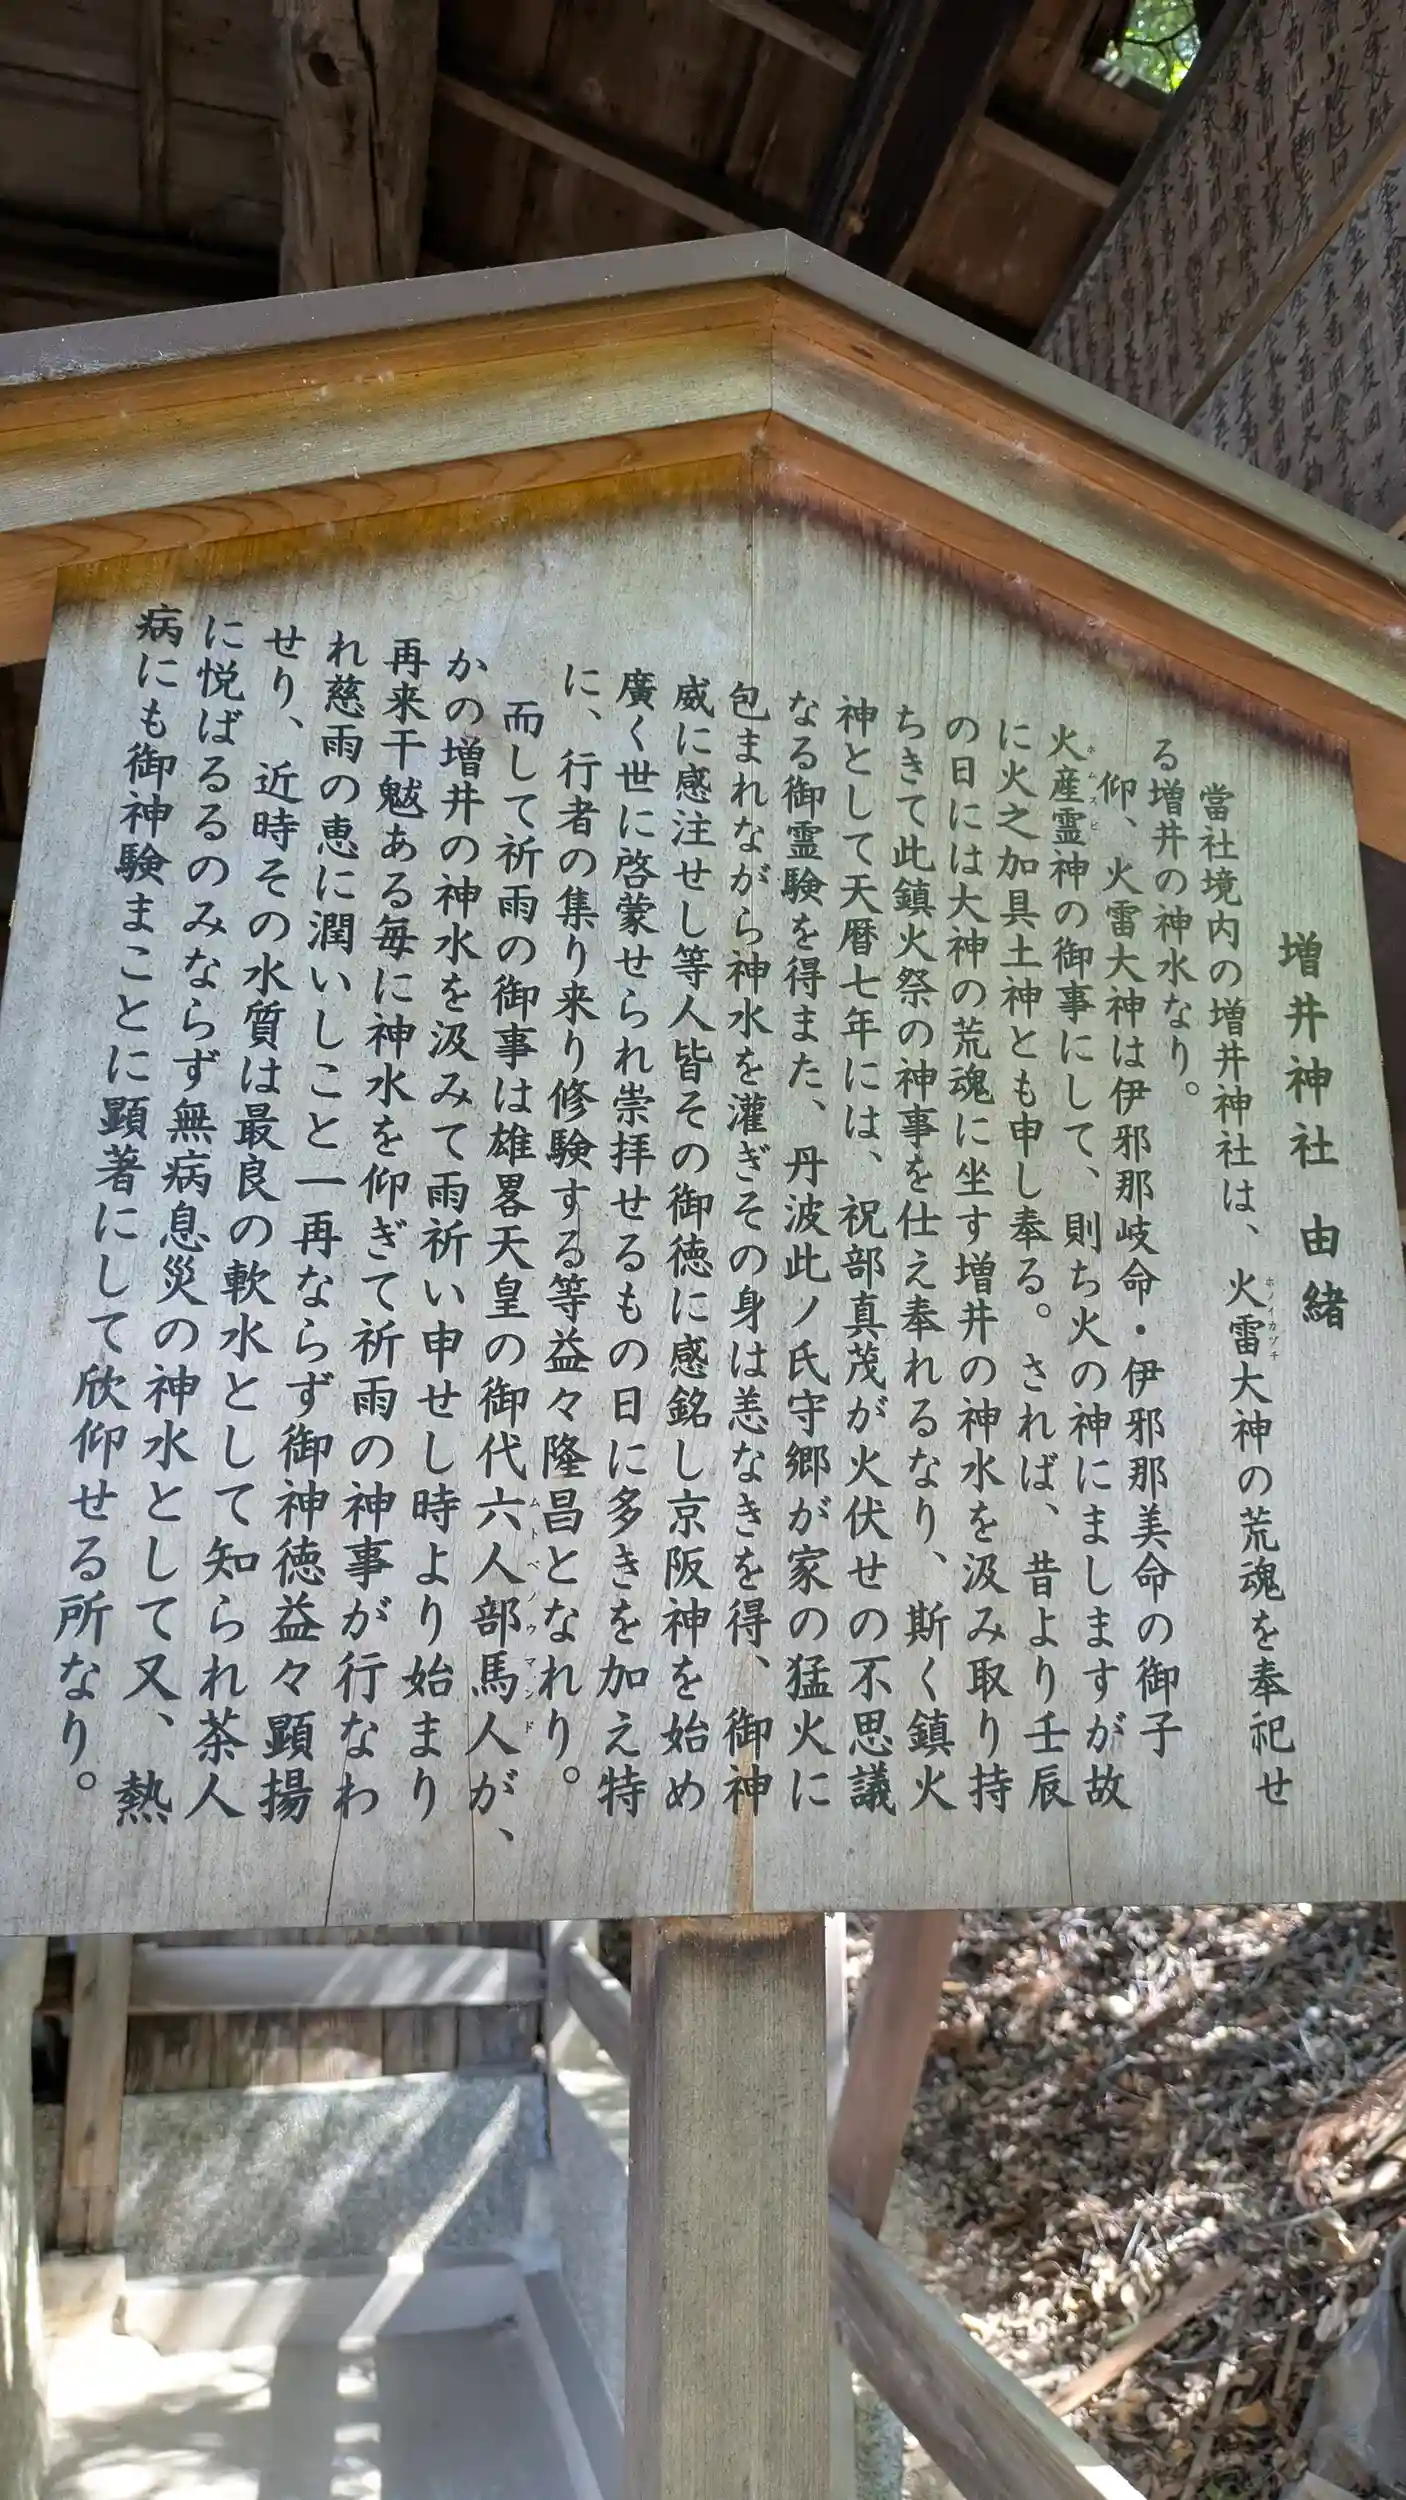 増井神社 由緒
當社境内の増井神社は、火雷大神の荒魂を奉祀せ
ホノイカヅチ
る増井の神水なり。
仰、火雷大神は伊邪那岐命・伊邪那美命の御子
火産霊神の御事にして、則ち火の神にましますが故
ホムスビ
に火之加具土神とも申し奉る。されば、昔より壬辰
の日には大神の荒魂に坐す増井の神水を汲み取り持
ちきて此鎮火祭の神事を仕え奉れるなり、斯く鎮火
神として天暦七年には、祝部真茂が火伏せの不思議
なる御霊験を得また、丹波此ノ氏守郷が家の猛火に
包まれながら神水を灌ぎその身は恙なきを得、御神
威に感注せし等人皆その御徳に感銘し京阪神を始め
廣く世に啓蒙せられ崇拝せるもの日に多きを加え特
に、行者の集り来り修験する等益々隆昌となれり。
而して祈雨の御事は雄畧天皇の御代六人部馬人が、
ムトベノウマンド
かの増井の神水を汲みて雨祈い申せし時より始まり
再来干魃ある毎に神水を仰ぎて祈雨の神事が行なわ
れ慈雨の恵に潤いしこと一再ならず御神徳益々顕揚
せり、近時その水質は最良の軟水として知られ茶人
に悦ばるるのみならず無病息災の神水として又、熱
病にも御神験まことに顕著にして欣仰せる所なり。